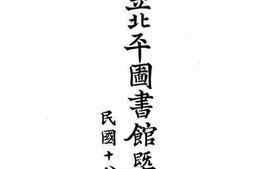 立北平圖書館暨
民國十